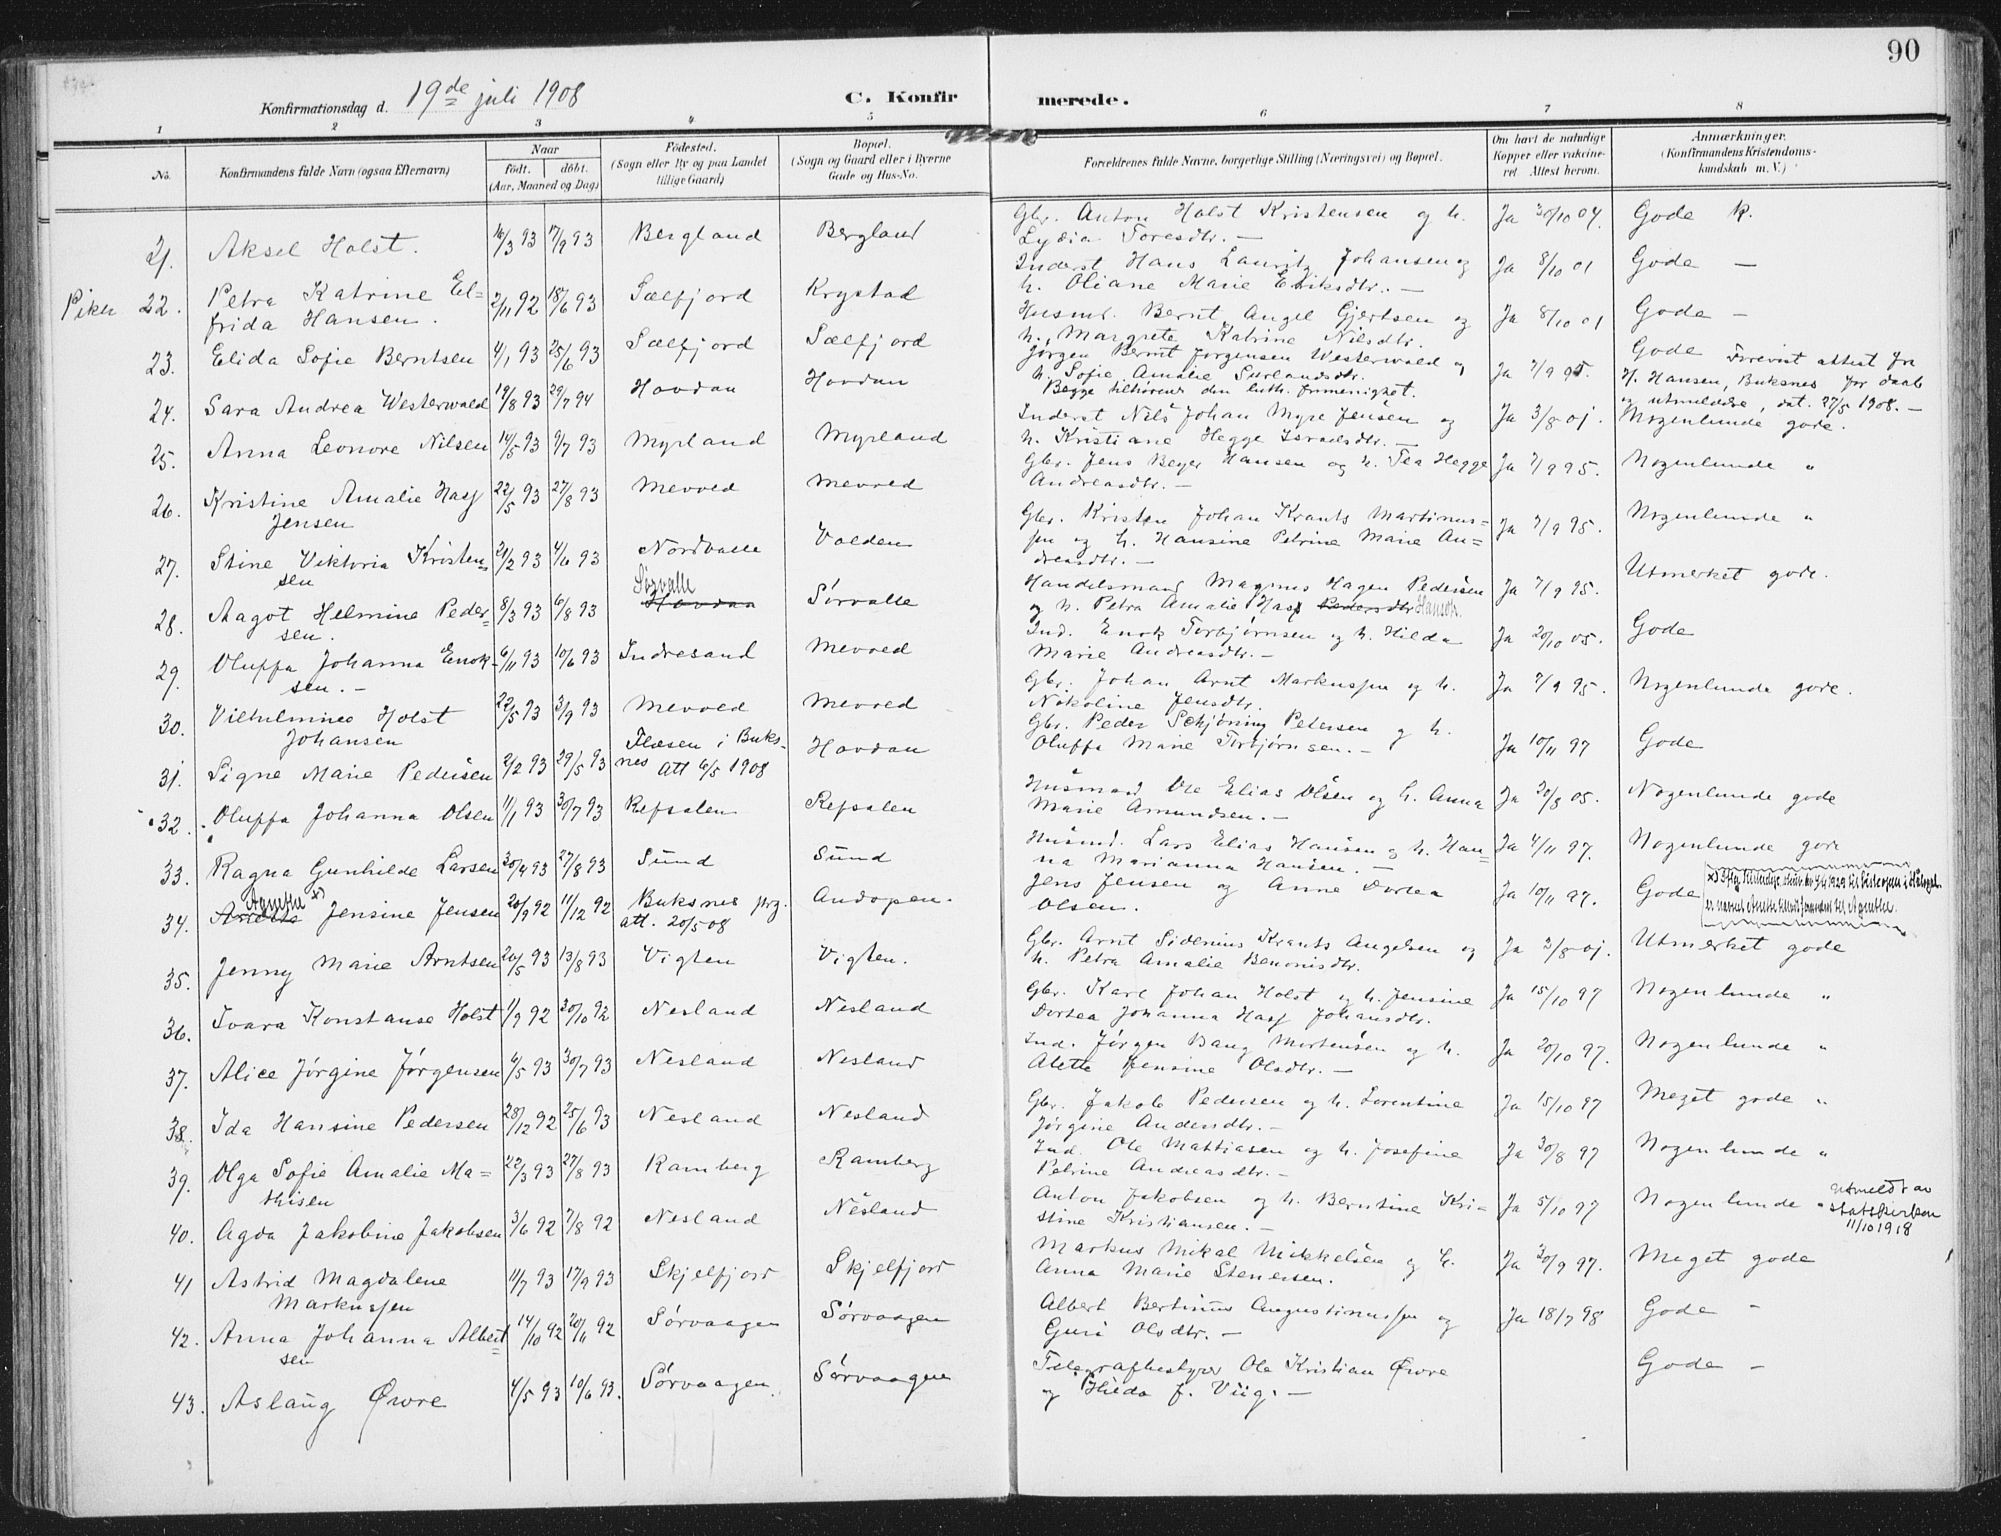 90
Konfirmationsdag d. 19de juli 1908
C. Konfir merede.
1 2 3 4 5 6 7 8
No. Konfirmandens fulde Navn (ogsaa Efternavn) Naar født. døbt. (Aar, Maaned og Dag) Fødested. (Sogn eller By og paa Landet tillige Gaard) Bopæl. (Sogn og Gaard eller i Byerne Gade og Hus-No. Forældrenes fulde Navne, borgerlige Stilling (Næringsvei) og Bopæl. Om havt de naturlige Kopper eller vakcineret Attest herom. Anmærkninger. (Konfirmandens Kristendomskundskab m. V.)
21. Aksel Holst. 16/3 93 17/9 93 Bergland Bergland Gbr. Anton Holst Kristensen og h. Ja 30/10 04. Gode k.
Lydia Toresdtr. —
Piker 22. Petra Katrine El= 2/11 92 18/6 93 Sælfjord Krystad Inderst Hans Lauritz Johansen og Ja 8/10 01 Gode —
frida Hansen. h. Oliane Marie Eriksdtr. —
23. Elida Sofie Berntsen 4/1 93 25/6 93 Sælfjord Sælfjord Husmd. Bernt Angel Gjertsen og Ja 8/10 01 Gode —
h. Margrete Katrine Nilsdtr.
24. Sara Andrea Westerwald 19/8 93 29/7 94 Hovdan Hovdan Jørgen Bernt Jørgensen Westerwald og Ja 7/9 95. Gode Forevist attest fra
h. Sofie Amalie Surlandsdtr. H. Hansen, Buksnes for daab
Begge tilhører den luth. frimenighet. og utmeldelse, dat. 27/5 1908. —
25. Anna Leonore Nilsen 14/5 93 9/7 93 Myrland Myrland Inderst Nils Johan Myre Jensen og Ja 3/8 01. Nogenlunde gode.
h. Kristiane Hegge Israelsdtr. —
26. Kristine Amalie Hasf 22/5 93 27/8 93 Mevold Mevold Gbr. Jens Beyer Hansen og h. Tea Hegge Ja 7/9 95. Nogenlunde "
Jensen Andreasdtr. —
27. Stine Viktoria Kristen= 21/2 93 4/6 93 Nordvalle Volden Gbr. Kristen Johan Krants Martinus= Ja 7/9 95. Nogenlunde "
sen sen og h. Hansine Petrine Marie An=
dreasdtr. —
28. Aagot Helmine Peder= 8/3 93 6/8 93 Sørvalle Hovdan Sørvalle Handelsmand Magnus Hagen Pedersen Ja 7/9 95. Utmerket gode.
sen. og h. Petra Amalie Hasf Pedersdtr Hansdtr.
29. Oluffa Johanna Enok- 6/11 93 10/6 93 Indresand Mevold Ind. Enok Torbjørnsen og h. Hilda Ja 20/10 05. Gode
sen. — Marie Andreasdtr. —
30. Vilhelmines Holst 22/5 93 3/9 93 Mevold Mevold Gbr. Johan Arnt Markussen og h. Ja 7/9 95. Nogenlunde gode.
Johansen Nikoline Jensdtr.
31. Signe Marie Pedersen 2/2 93 29/5 93 Flæsen i Buks- Hovdan Gbr. Peder Schjøning Petersen og h. Ja 10/11 97 Gode
nes Att 6/5 1908 Oluffa Marie Torbjørnsen. —
32. Oluffa Johanna Olsen 11/1 93 30/7 93 Refsalen Refsalen Husmand Ole Elias Olsen og h. Anna Ja 20/8 05. Nogenlunde gode
Marie Amundsen. —
33. Ragna Gunhilde Larsen 30/4 93 27/8 93 Sund Sund Husmd. Lars Elias Hansen og h. Han= Ja 4/11 97. Nogenlunde gode
na Marianna Hansen. —
34. Agnethe x) Jensine Jensen 20/9 92 11/12 92 Buksnes prg. Andopen. Jens Jensen og Anne Dortea Ja 10/11 97. Gode
att. 20/5 08 Olsen.
35. Jenny Marie Arntsen 20/5 93 13/8 93 Vigten Vigten. Gbr. Arnt Sidenius Krants Angelsen og Ja 3/8 01. Utmerket gode
h. Petra Amalie Benonisdtr.
36. Ivara Konstanse Holst 1/9 92 30/10 92 Nesland Nesland Gbr. Karl Johan Holst og h. Jensine Ja 15/10 97 Nogenlunde "
Dortea Johanna Hasf Johansdtr.
37. Alice Jørgine Jørgensen 4/5 93 30/7 93 Nesland Nesland Ind. Jørgen Bang Mortensen og h. Ja 20/10 97. Nogenlunde "
Alette Jensine Olsdtr. —
38. Ida Hansine Pedersen 28/12 92 25/6 93 Nesland Nesland Gbr. Jakob Pedersen og h. Lorentine Ja 15/10 97 Meget gode "
Jørgine Andersdtr. —
39. Olga Sofie Amalie Ma= 22/3 93 27/8 93 Ramberg Ramberg Ind. Ole Mattiasen og h. Josefine Ja 30/8 97 Nogenlunde "
thisen Petrine Andreasdtr. —
40. Agda Jakobine Jakobsen 3/6 92 7/8 92 Nesland Nesland Anton Jakobsen og h. Berntine Kri= Ja 5/10 97 Nogenlunde " Utmeldt av
stine Kristiansen. — statskirken
11/10 1918
41 Astrid Magdalene 11/7 93 17/9 93 Skjelfjord Skjelfjord Markus Mikal Mikkelsen og h. Ja 30/9 97. Meget gode
Markussen Anna Marie Stenersen.
42. Anna Johanna Albert= 14/10 92 20/11 92 Sørvaagen Sørvaagen Albert Bertinus Augustinussen og Ja 18/7 98 Gode —
sen Guri Olsdtr. —
43. Aslaug Øwre 4/5 93 10/6 93. Sørvaagen Sørvaagen Telegrafbestyrer Ole Kristian Øwre Gode —
og Hilda J. Viig. —